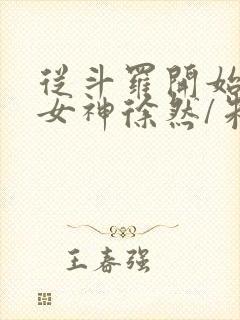 從斗羅開始
女神徐然/
王春强